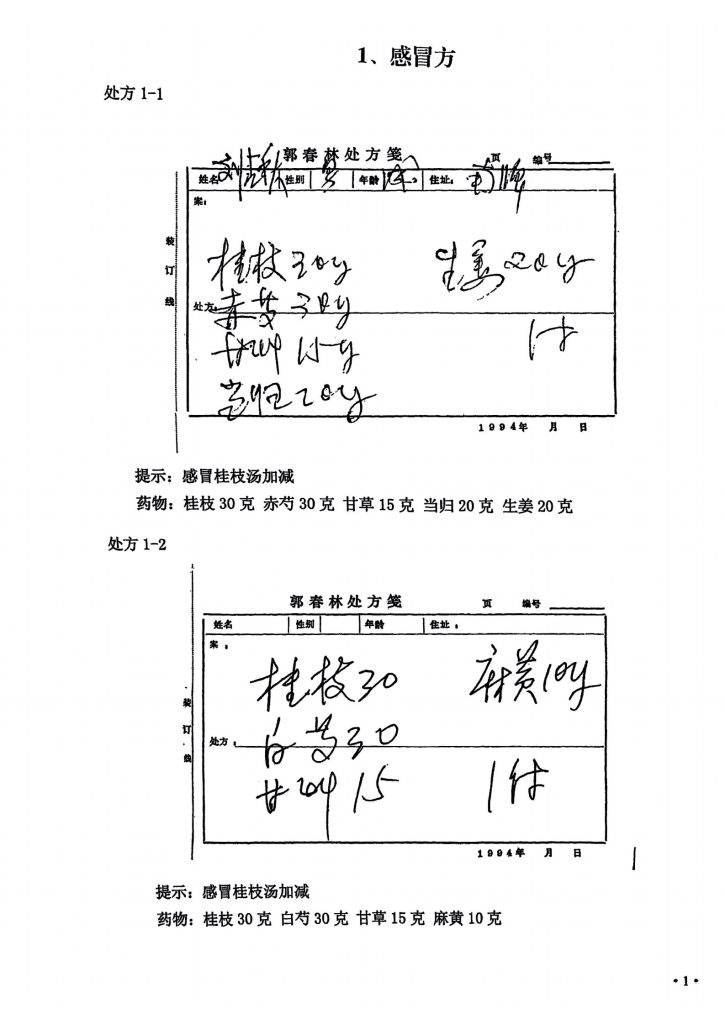 1、感冒方
处方 1-1
郭春林处方笺 页 编号
姓名 性别 男 年龄 住址：
案：
桂枝30g 生姜20g
处方：
赤芍30g
甘草15g 1付
当归20g
装订线
1994年 月 日
提示：感冒桂枝汤加减
药物：桂枝 30 克 赤芍 30 克 甘草 15 克 当归 20 克 生姜 20 克
处方 1-2
郭春林处方笺 页 编号
姓名 性别 年龄 住址：
案：
桂枝30 麻黄10g
处方：
白芍30
甘草15 1付
装订线
1994年 月 日
提示：感冒桂枝汤加减
药物：桂枝 30 克 白芍 30 克 甘草 15 克 麻黄 10 克
·1·